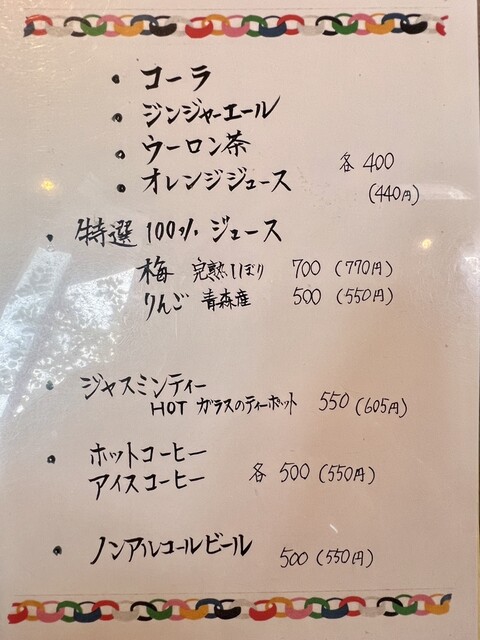 ・コーラ
・ジンジャーエール
・ウーロン茶
・オレンジジュース 各 400
(440円)
・特選 100% ジュース
梅 完熟しぼり 700 (770円)
りんご 青森産 500 (550円)
・ジャスミンティー
HOT ガラスのティーポット 550 (605円)
・ホットコーヒー
アイスコーヒー 各 500 (550円)
・ノンアルコールビール 500 (550円)